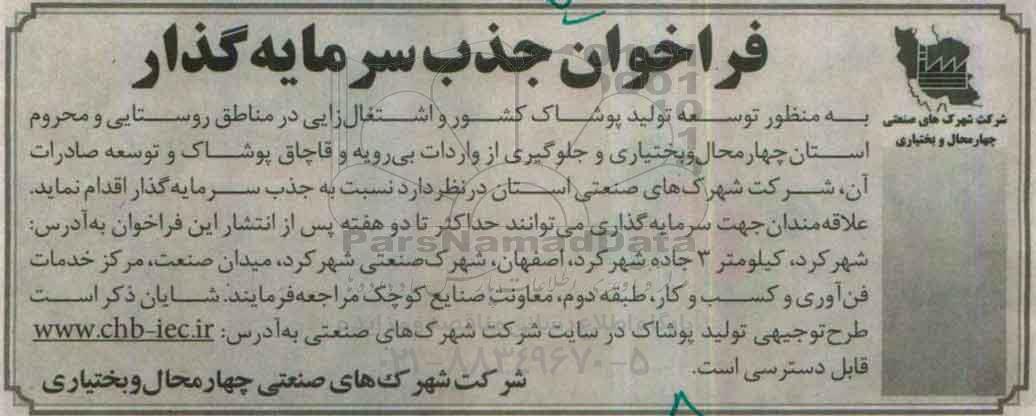 فراخوان جذب سرمایه‌گذار
شرکت شهرک های صنعتی
چهارمحال و بختیاری
به منظور توسعه تولید پوشاک کشور و اشتغال‌زایی در مناطق روستایی و محروم
استان چهارمحال‌وبختیاری و جلوگیری از واردات بی‌رویه و قاچاق پوشاک و توسعه صادرات
آن، شرکت شهرک‌های صنعتی استان درنظر دارد نسبت به جذب سرمایه‌گذار اقدام نماید.
علاقه‌مندان جهت سرمایه‌گذاری می‌توانند حداکثر تا دو هفته پس از انتشار این فراخوان به‌آدرس:
شهرکرد، کیلومتر ۳ جاده شهرکرد، اصفهان، شهرک‌صنعتی شهرکرد، میدان صنعت، مرکز خدمات
فن‌آوری و کسب و کار، طبقه دوم، معاونت صنایع کوچک مراجعه‌فرمایند. شایان ذکر است
طرح‌توجیهی تولید پوشاک در سایت شرکت شهرک‌های صنعتی به‌آدرس: www.chb-iec.ir
قابل دسترسی است.
شرکت شهرک‌های صنعتی چهارمحال‌وبختیاری
ParsNamadData
۰۲۱-۸۸۳۴۹۶۷۰-۵